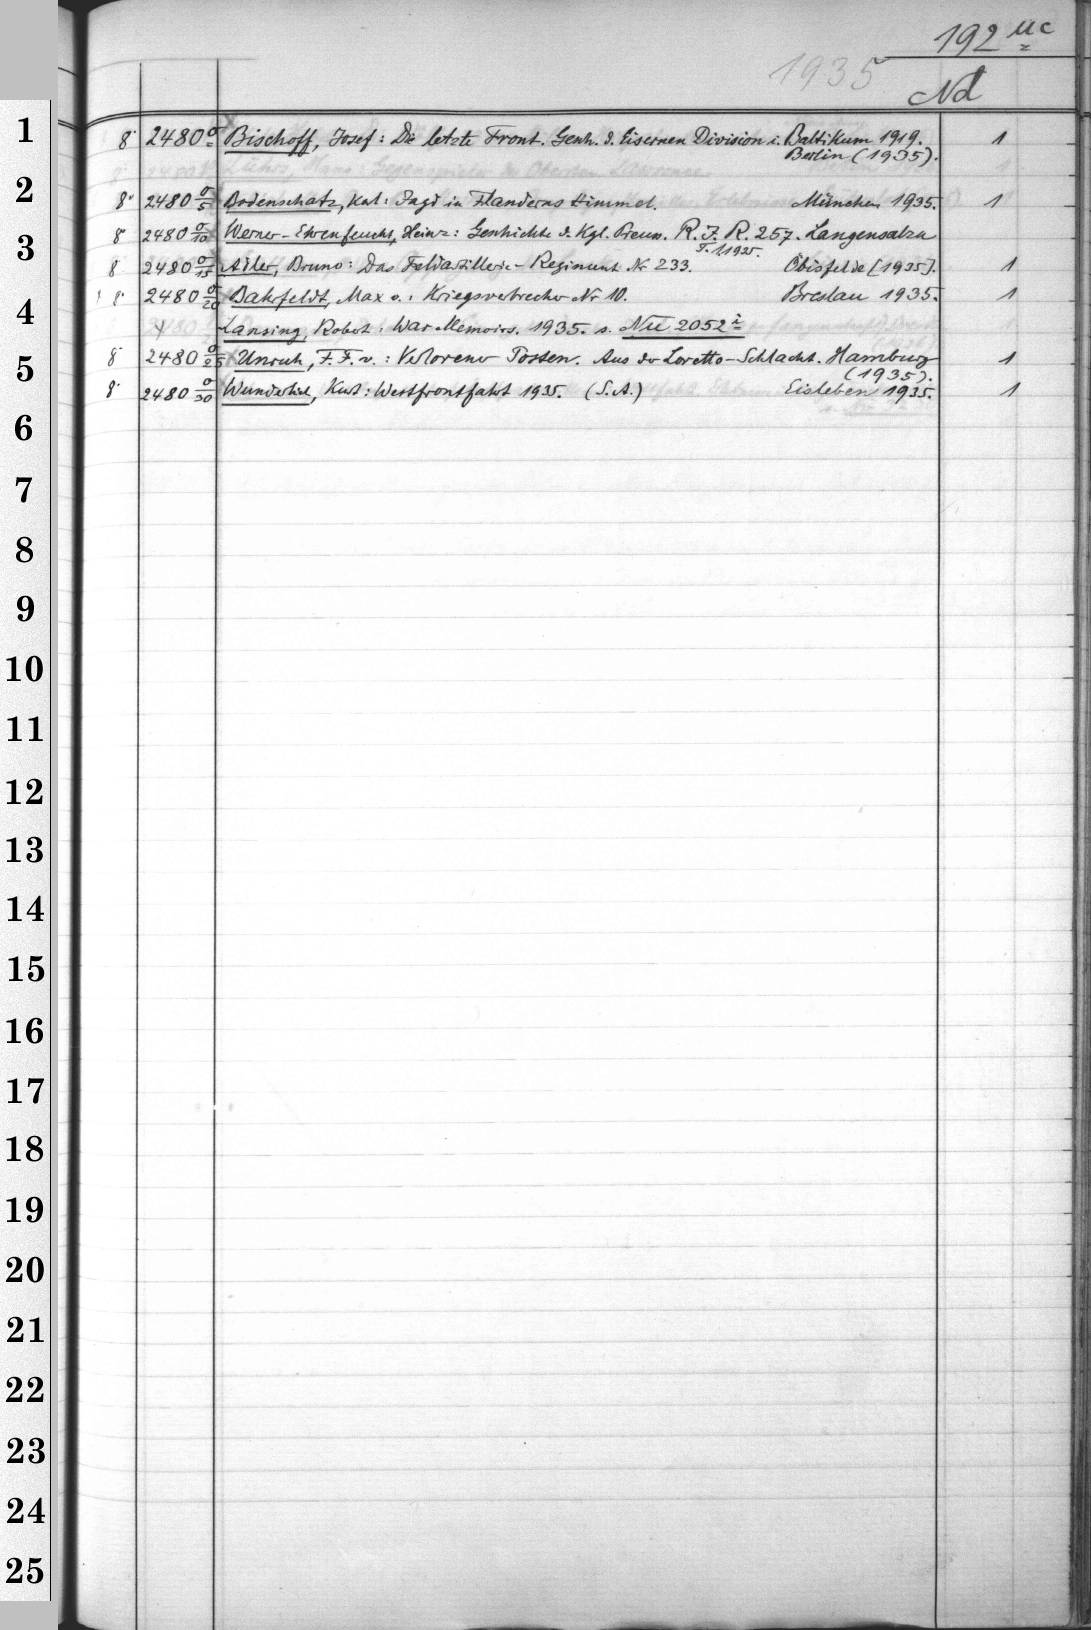 192 uc
1935
Nd
1
8° 2480 o Bischoff, Josef: Die letzte Front. Gesch. d. Eisernen Division i. Baltikum 1919. 1
Berlin (1935).
2
8° 2480 o/5 Bodenschatz, Karl: Jagd in Flanderns Himmel. München 1935. 1
3
8° 2480 o/10 Werner-Ehrenfeucht, Heinz: Geschichte d. Kgl. Preuss. R. I. R. 257. Langensalza
T. 1 1935.
8° 2480 o/15 Adler, Bruno: Das Feldartillerie-Regiment Nr 233. Öbisfelde [1935]. 1
4
8° 2480 o/20 Bahrfeldt, Max v.: Kriegsverbrecher Nr 10. Breslau 1935. 1
Lansing, Robert: War Memoirs. 1935. s. Nu 2052 i
5
8° 2480 o/25 Unruh, F. F. v.: Verlorener Posten. Aus der Loretto-Schlacht. Hamburg 1
(1935).
8° 2480 o/30 Wunderlich, Kurt: Westfrontfahrt 1935. (S.A.) Eisleben 1935. 1
6
7
8
9
10
11
12
13
14
15
16
17
18
19
20
21
22
23
24
25